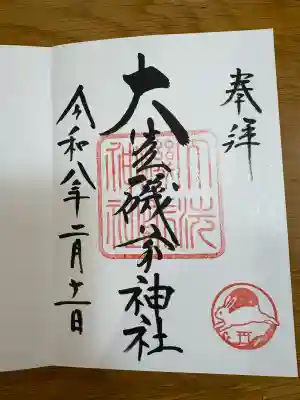 奉拝
大洗磯前神社
令和八年二月十一日